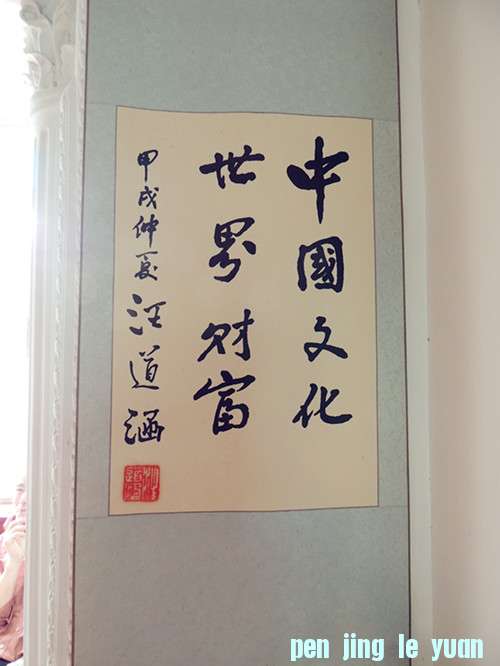 中國文化
世界财富
甲戌仲夏
汪道涵
pen jing le yuan